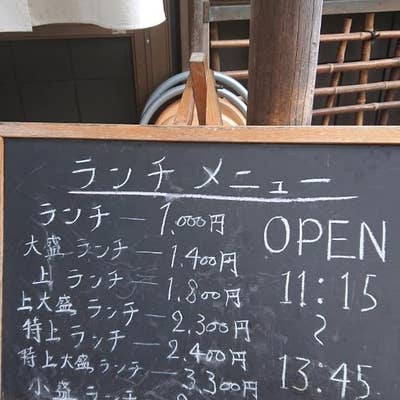 ランチ メニュー
ランチ — 1,000円
大盛 ランチ — 1,400円
上 ランチ — 1,800円
上大盛 ランチ — 2,300円
特上 ランチ — 2,400円
特上大盛 ランチ — 3,300円
小盛 ランチ —
OPEN
11:15
〜
13:45